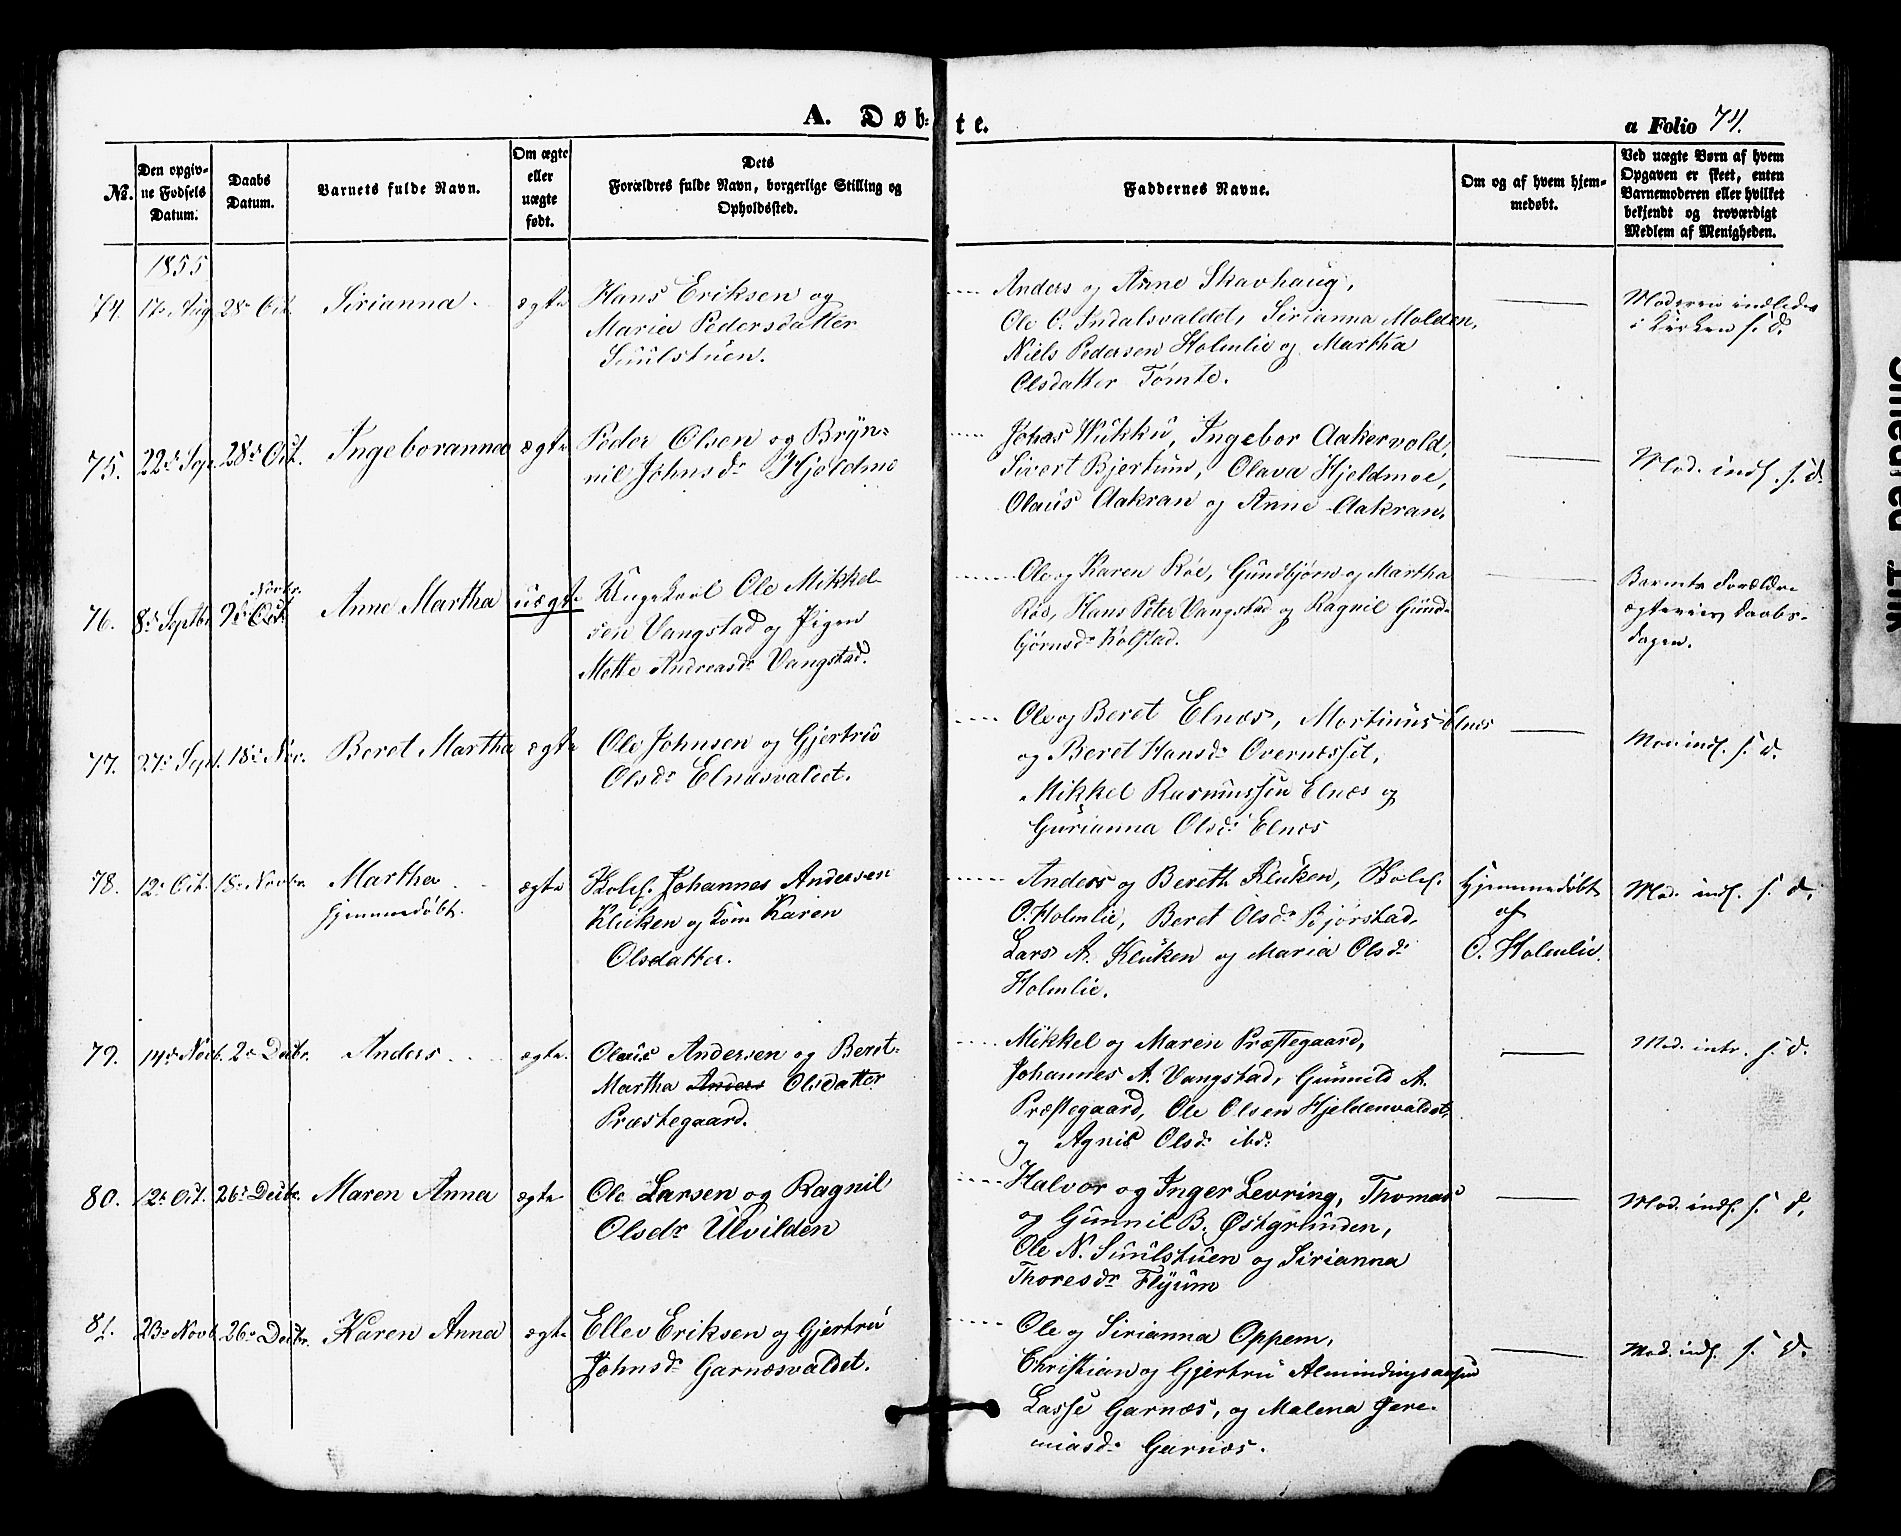 A. Døb-te.
a Folio 74.
No.
Den opgiv-
ne Fødsels
Datum.
Daabs
Datum.
Barnets fulde Navn.
Om ægte
eller
uægte
født.
Dets
Forældres fulde Navn, borgerlige Stilling og
Opholdssted.
Faddernes Navne.
Om og af hvem hjem-
medøbt.
Ved uægte Børn af hvem
Opgaven er skeet, enten
Barnemoderen eller hvilket
bekjendt og troværdigt
Medlem af Menigheden.
1855
74. 17de Aug 28de Oct. Sirianna ægte
Hans Eriksen og
Maria Pedersdatter
Suulstuen.
Anders og Anne Skavhaug,
Ole C. Indalsvaldet, Sirianna Molden,
Niels Pedersen Holmlie og Martha
Olsdatter Tømte.
Moderen indledes
i Kirken s. d.
75. 22de Sept. 28de Oct. Ingeboranna ægte
Peder Olsen og Bryn-
nil Johnsdr Hjeldmo
Johas Wukku, Ingebor Aakervold,
Sivert Bjertum, Olava Hjeldmoe,
Olaus Aakran og Anne Aakran.
Mod. indl. s. d.
76. 8de Septbr Novbr.
9de Oct. Anne Martha uægte
Ungekarl Ole Mikkel-
sen Vangstad og Pigen
Mette Andreasdr Vangstad.
Ole og Karen Røe, Gundbjørn og Martha
Røe, Hans Peter Vangstad og Ragnil Gund-
bjørnsdr Kolstad.
Barnets Forældre
ægteviev Daabs-
dagen.
77. 27de Sept. 18de Nov. Beret Martha ægte
Ole Johnsen og Gjertru
Olsdr Elnæsvaldet.
Ole og Beret Elnæs, Mortinus Elnæs
og Beret Hansdr Overnæsset,
Mikkel Rasmussen Elnæs og
Gurianna Olsdr Elnæs
Mod indl. s. d.
78. 12te Oct. 18de Novbr. Martha
hjemmedøbt.
ægte
Skolel. Johannes Andersen
Kluken og Kone Karen
Olsdatter.
Anders og Bereth Kluken, Skolel.
O. Holmlie, Beret Olsdr Bjørstad,
Lars A. Kluken og Maria Olsdr
Holmlie.
Hjemmedøbt
af
O. Holmlie.
Mod. indl. s. d.
79. 14de Novb. 2de Decbr. Anders ægte.
Olaus Andersen og Beret-
Martha Anders Olsdatter
Præstegaard.
Mikkel og Maren Præstegaard,
Johannes A. Vangstad, Gunnild A.
Præstegaard, Ole Olsen Hjeldenvaldet,
og Agnis Olsdr ibd.
Mod. intr. s. d.
80. 12te Oct. 26de Decbr. Maren Anna ægte
Ole Larsen og Ragnil
Olsdr Ulvilden
Halvor og Inger Levring, Thomas
og Gunnil B. Østgrunden,
Ole N. Suulstuen og Sirianna
Thoresdr Flyum
Mod. indl. s. d.
81. 23de Novb. 26de Decbr. Karen Anna ægte
Ellev Eriksen og Gjertru
Johnsdr Garnæsvaldet.
Ole og Sirianna Oppem,
Christian og Gjertru Almindingsaasen
Lasse Garnæs, og Malena Jere-
miasdr Garnæs.
Mod. indl. s. d.